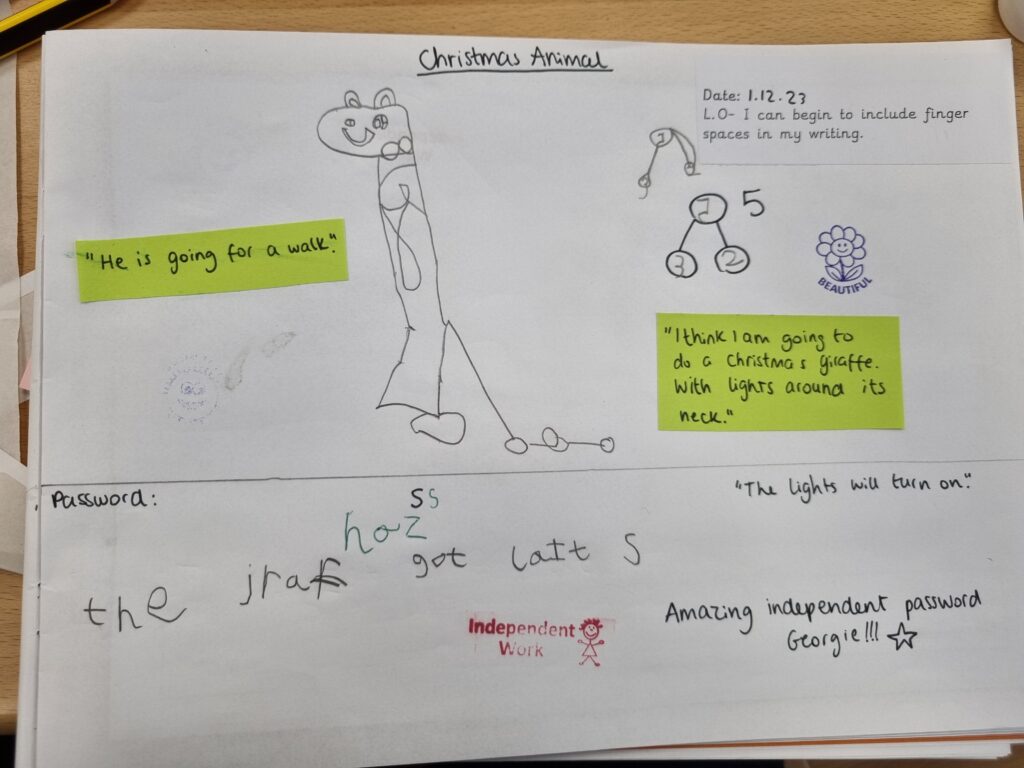 Christmas Animal
Date: 1.12.23
L.O- I can begin to include finger
spaces in my writing.
1
1 5
3 2
BEAUTIFUL
"He is going for a walk."
"I think I am going to
do a Christmas giraffe.
With lights around its
neck."
Password:
"The lights will turn on."
S S
haz
the jraf got latt S
Independent
Work
Amazing independent password
Georgie!!!